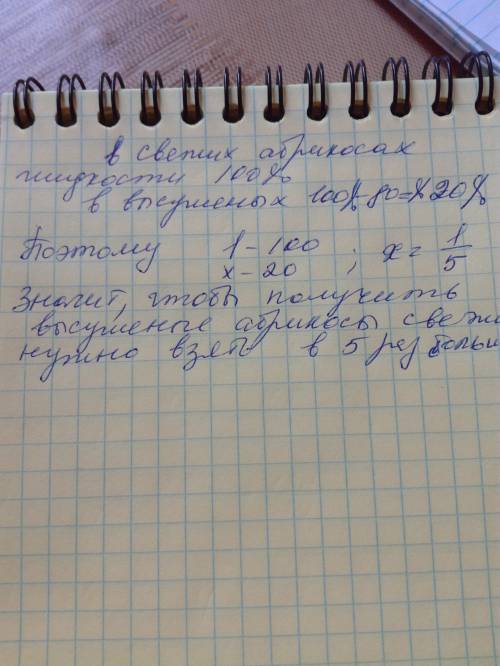 в свежих абрикосах
жидкости 100%
в высушеных 100%-80=%20%
Поэтому 1-100 ; x = 1/5
x-20
Значит, чтобы получить
высушеные абрикосы свежи
нужно взять в 5 раз больш